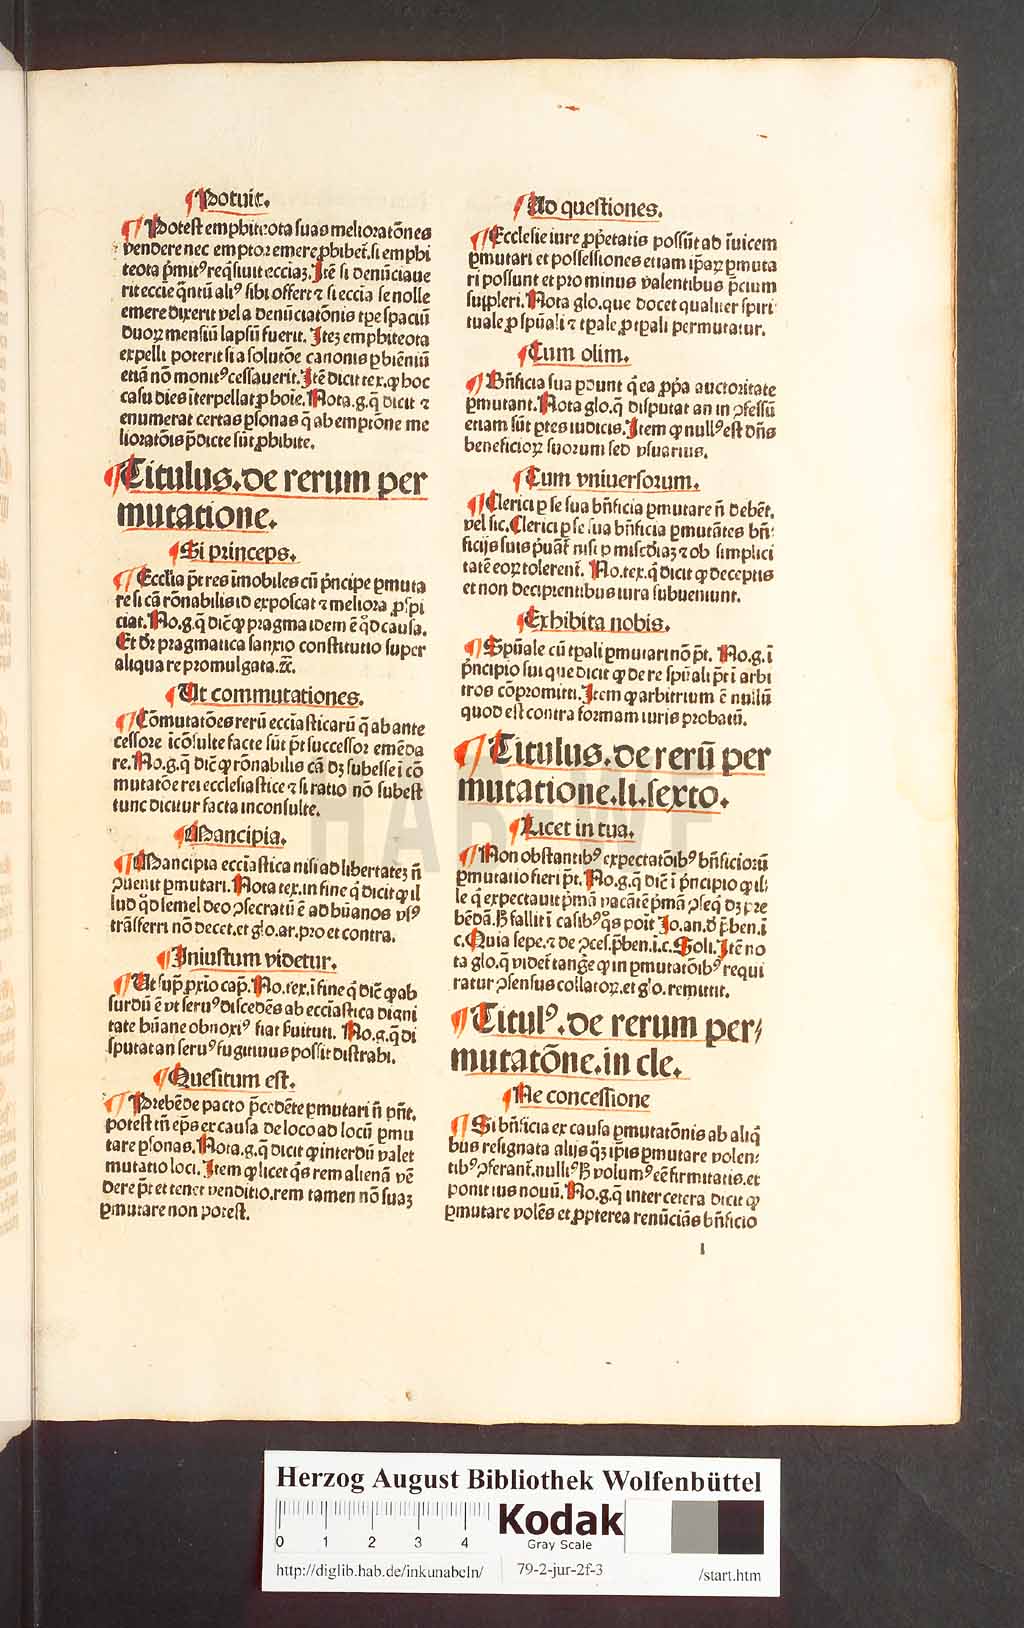 Potuit.
Potest emphiteota suas melioratōnes
vendere nec emptor emere ꝓhibet̄.si emphi
teota p̄mitꝰ req̄siuit eccīaꝫ.Itē si denūciaue
rit eccīe q̄ntū aliꝰ sibi offert ⁊ si eccīa se nolle
emere dixerit vel a denūciatōnis tꝑe spaciū
duoꝝ mensiū lapsū fuerit. Iteꝫ emphiteota
expelli poterit si a solutōe canonis ꝑ bieniū
etiā nō monitꝰ cessauerit.Itē dicit tex.ꝙ hoc
casu dies īterpellat ꝓ hoīe.Nota.g.q̄ dicit ⁊
enumerat certas ꝑsonas q̄ ab emptōne me
lioratōis p̄dicte sūt ꝓhibite.
Titulus.de rerum per
mutatione.
Si princeps.
Ecclīa p̄t res īmobiles cū p̄ncipe ꝑmuta
re si cā rōnabilis id exposcat ⁊ meliora ꝓspi
ciat.No.g.q̄ dic̄ ꝙ pragma idem ē qd̄ causa.
Et dr̄ pragmatica sanxio constitutio super
aliqua re promulgata.⁊c̄.
Ut commutationes.
Cōmutatōes rerū eccīasticarū q̄ ab ante
cessore icōsulte facte sūt p̄t successor emēda
re.No.g.q̄ dic̄ ꝙ rōnabilis cā dꝫ subesse ī cō
mutatōe rei ecclesiastice ⁊ si ratio nō subest
tunc dicitur facta inconsulte.
Mancipia.
Mancipia eccīastica nisi ad libertateꝫ n̄
ꝯuenit ꝑmutari.Nota tex.in fine q̄ dicit ꝙ il
lud qd̄ semel deo ꝯsecratū ē ad hūanos vsꝰ
trāsferri nō decet.et glo.ar.pro et contra.
Iniustum videtur.
Ut sup̄ ꝓxio cap̄.No.tex.ī fine q̄ dic̄ ꝙ ab
surdū ē vt seruꝰ discedēs ab eccīastica digni
tate hūane obnoxiꝰ fiat s̄uituti. No.g.q̄ di
sputat an seruꝰ fugitiuus possit distrahi.
Quesitum est.
Prebēde pacto p̄cedēte ꝑmutari n̄ pn̄t.
potest tn̄ ep̄s ex causa de loco ad locū ꝑmu
tare ꝑsonas.Nota.g.q̄ dicit ꝙ interdū valet
mutatio loci.Item ꝙ licet q̄s rem alienā vē
dere p̄t et tenet venditio.rem tamen nō suaꝫ
ꝑmutare non potest.
Ad questiones.
Ecclesie iure ꝓp̄etatis possūt ad īuicem
ꝑmutari et possessiones etiam ip̄aꝝ ꝑmuta
ri possunt et pro minus valentibus p̄cium
suppleri.Nota glo.que docet qualiter spiri
tuale ꝓ spūali ⁊ tꝑale ꝓ tꝑali permutatur.
Cum olim.
Bn̄ficia sua ꝑdunt q̄ ea ꝓp̄a auctoritate
ꝑmutant.Nota glo.q̄ disputat an in ꝯfessū
etiam sūt ꝑtes iudicis.Item ꝙ nullꝰ est dn̄s
beneficioꝝ suorum sed vsuarius.
Cum vniuersorum.
Clerici ꝑ se sua bn̄ficia ꝑmutare n̄ debēt.
vel sic.Clerici ꝑ se sua bn̄ficia ꝑmutātes bn̄
ficijs suis p̄uāt̄ nisi ꝑ misc̄diaꝫ ⁊ ob simplici
tatē eoꝝ tolerent̄. No.tex.q̄ dicit ꝙ deceptis
et non decipientibus iura subueniunt.
Exhibita nobis.
Spūale cū tꝑali ꝑmutari nō p̄t. No.g.ī
p̄ncipio sui que dicit ꝙ de re spūali p̄t ī arbi
tros cōpromitti.Item ꝙ arbitrium ē nullū
quod est contra formam iuris probatū.
Titulus.de rerū per
mutatione.li.sexto.
Licet in tua.
Non obstantibꝰ expectatōibꝰ bn̄ficiorū
ꝑmutatio fieri p̄t.No.g.q̄ dic̄ ī p̄ncipio ꝙ il⸗
le q̄ expectauit p̄mā vacātē p̄mā ꝯseq̄ dꝫ pre
bēdā.Hꝫ fallit ī casibꝰ q̄s poīt Jo.an.d̄ p̄ben.ī
c.Quia sepe.⁊ de ꝯces.p̄ben.ī.c.Soli.Itē no
ta glo.q̄ videt̄ tanḡe ꝙ in ꝑmutatōibꝰ requi
ratur ꝯsensus collatoꝝ.et glo.remittit.
Titulꝰ.de rerum per⸗
mutatōne.in cle.
Ne concessione
Si bn̄ficia ex causa ꝑmutatōnis ab aliq̄
bus resignata alijs qꝫ ip̄is ꝑmutare volen⸗
tibꝰ ꝯferant̄.nulliꝰ hꝫ volumꝰ eē firmitatis.et
ponit ius nouū.No.g.q̄ inter cetera dicit ꝙ
ꝑmutare volēs et ꝓpterea renūciās bn̄ficio
l
HAB-WF
Herzog August Bibliothek Wolfenbüttel
0 1 2 3 4
Kodak
Gray Scale
http://diglib.hab.de/inkunabeln/ 79-2-jur-2f-3 /start.htm